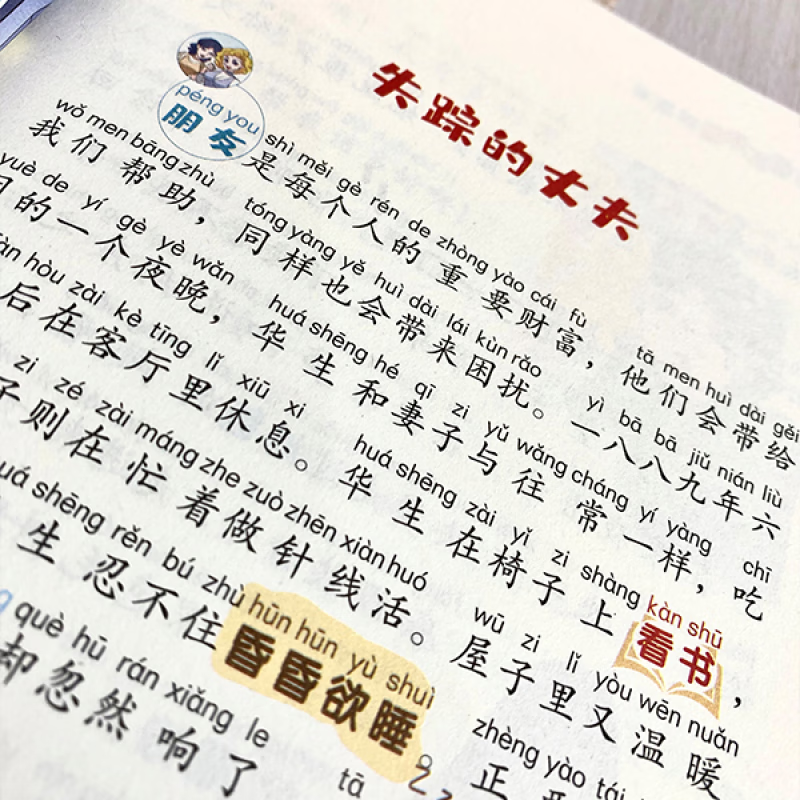 失踪的丈夫
péng you shì měi gè rén de zhòng yào cái fù tā men huì dài gěi
朋友是每个人的重要财富，他们会带给
wǒ men bāng zhù tóng yàng yě huì dài lái kùn rǎo yì bā bā jiǔ nián liù
我们帮助，同样也会带来困扰。一八八九年六
yuè de yí gè yè wǎn huá shēng hé qī zi yǔ wǎng cháng yí yàng chī
月的一个夜晚，华生和妻子与往常一样，吃
hòu zài kè tīng lǐ xiū xi huá shēng zài yǐ zi shàng kàn shū
后在客厅里休息。华生在椅子上看书，
zi zé zài máng zhe zuò zhēn xiàn huó wū zi lǐ yòu wēn nuǎn
子则在忙着做针线活。屋子里又温暖
shēng rěn bú zhù hūn hūn yù shuì zhèng yào tái
生忍不住昏昏欲睡。正
què hū rán xiǎng le tā
却忽然响了